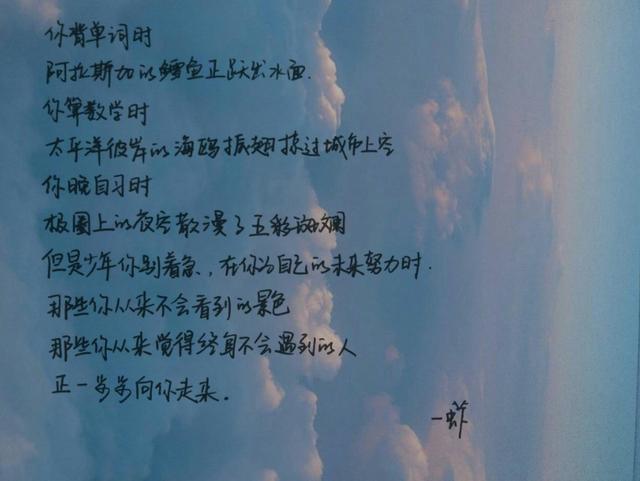 你背单词时
阿拉斯加的鳕鱼正跃出水面.
你算数学时
太平洋彼岸的海鸥振翅掠过城市上空
你晚自习时
极圈上的夜空散漫了五彩斑斓
但是少年你别着急，在你为自己的未来努力时.
那些你从来不会看到的景色
那些你从来觉得终身不会遇到的人
正一步步向你走来.